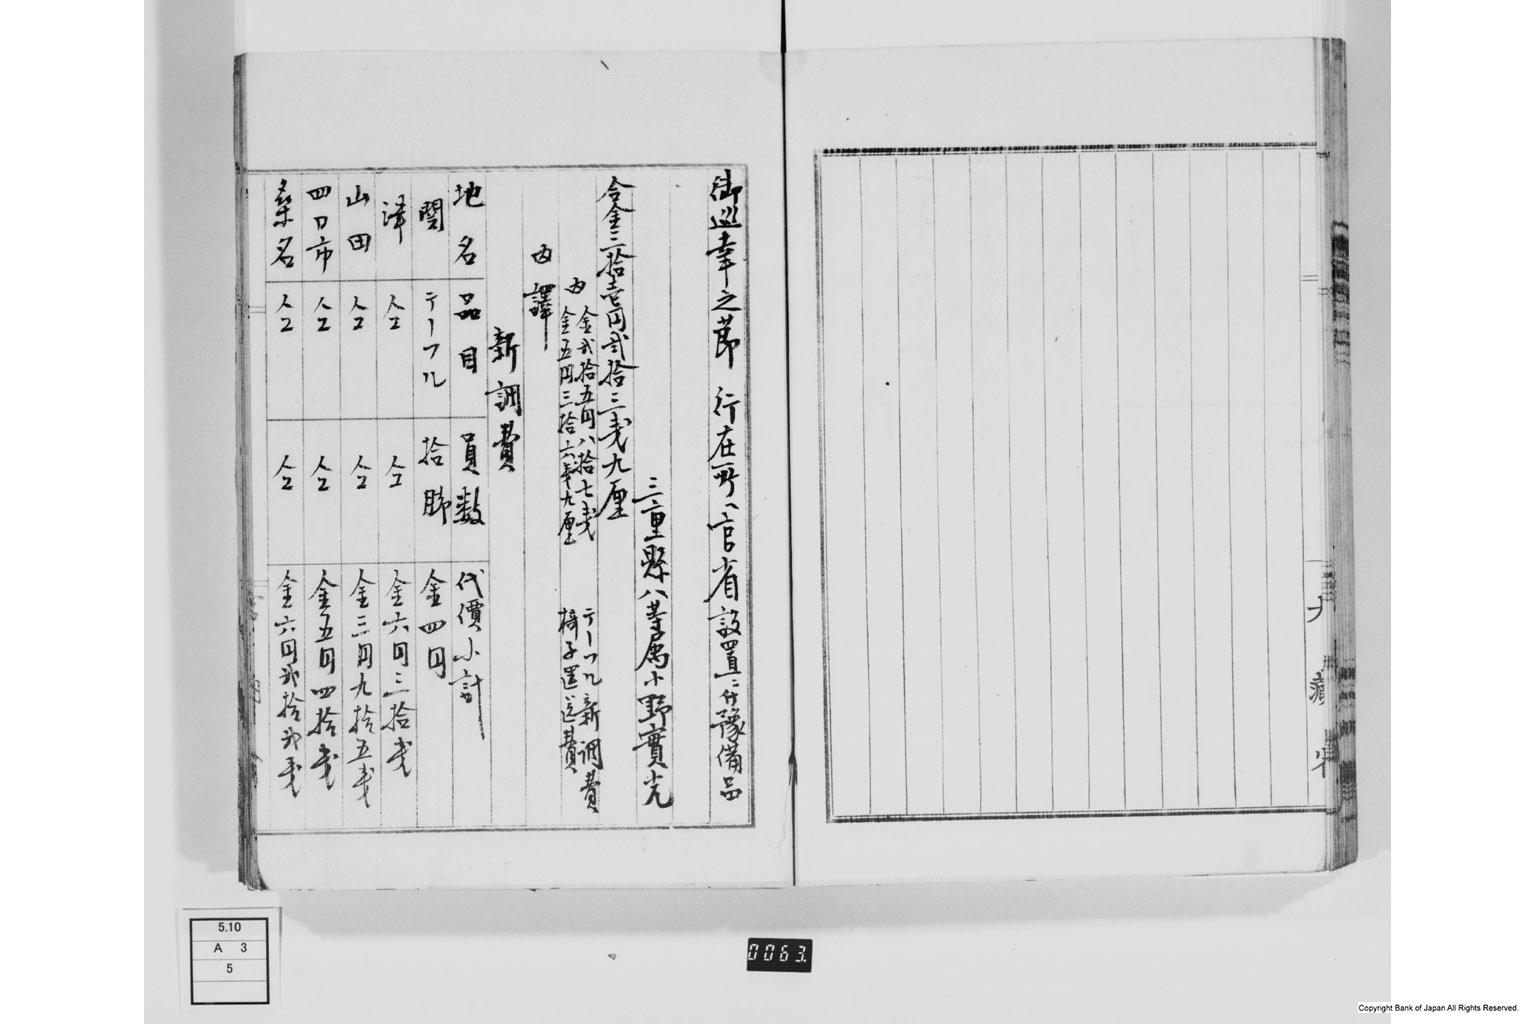 御巡幸之節 行在所ヘ官省設置ニ付豫備品
三重縣八等属小野實光
合金三拾壱円弐拾三戔九厘
内 金弐拾五円八拾七戔 テーフル新調費
金五円三拾六戔九厘 椅子運送費
内譯
新調費
地名 品目 員数 代價小計
関 テーフル 拾脚 金四円
津 仝 仝 金六円三拾戔
山田 仝 仝 金三円九拾五戔
四日市 仝 仝 金五円四拾戔
桑名 仝 仝 金六円弐拾弐戔
5.10
A 3
5
0063.
Copyright Bank of Japan All Rights Reserved.